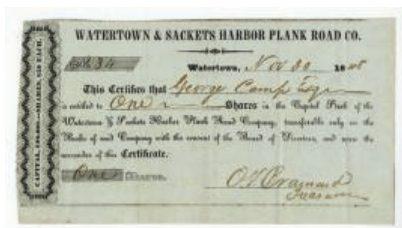 WATERTOWN & SACKETS HARBOR PLANK ROAD CO.
No. 34
Watertown, Nov 30 1848
This Certifies that George Camp Esqr
is entitled to One Shares in the Capital Stock of the
Watertown & Sackets Harbor Plank Road Company, transferable only on the
Books of said Company with the consent of the Board of Directors, and upon the
surrender of this Certificate.
One Shares.
O V Brainard
Treasurer
SHARES, $50 EACH.